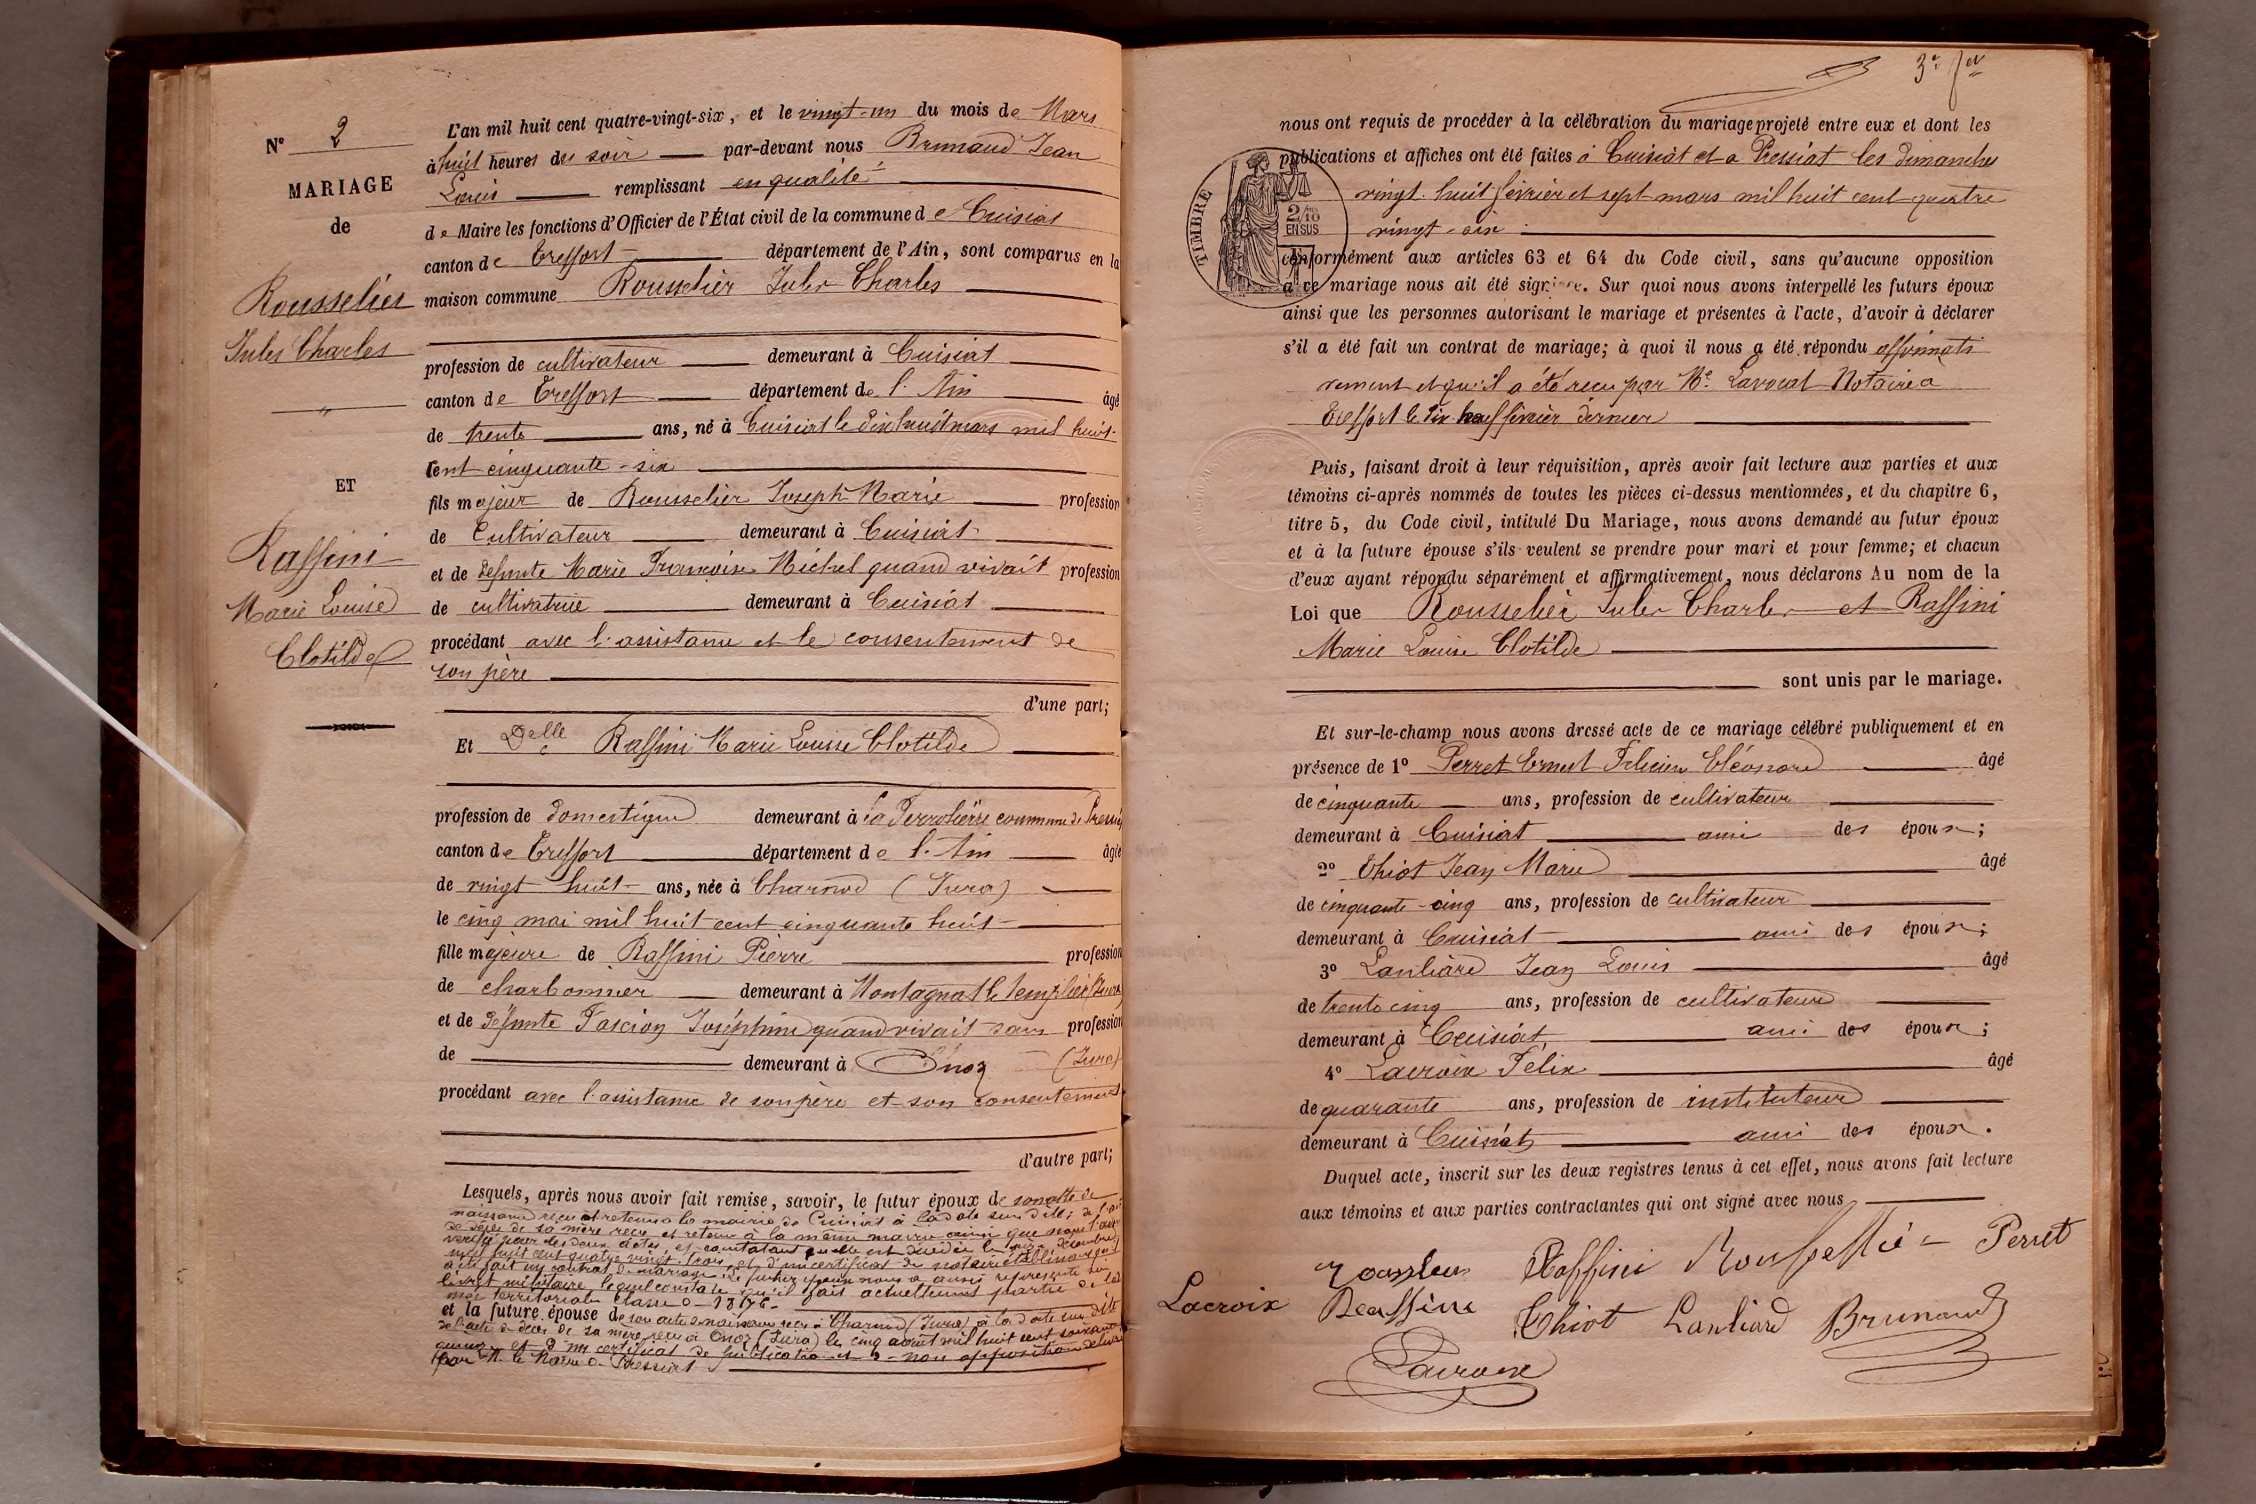 N° 2
MARIAGE
de
Rousselier
Jules Charles
"
ET
Raffini
Marie Louise
Clotilde
L'an mil huit cent quatre-vingt-six, et le vingt-un du mois de Mars
à huit heures du soir par-devant nous Brunaud Jean
Louis remplissant en qualité
de Maire les fonctions d'Officier de l'État civil de la commune de Cuisiat
canton de Treffort département de l'Ain, sont comparus en la
maison commune Rousselier Jules Charles
profession de cultivateur demeurant à Cuisiat
canton de Treffort département de l'Ain âgé
de trente ans, né à Cuisiat le dix huit mars mil huit
cent cinquante-six
fils majeur de Rousselier Joseph Marie profession
de Cultivateur demeurant à Cuisiat
et de defunte Marie Françoise Michel quand vivait profession
de cultivatrice demeurant à Cuisiat
procédant avec l'assistance et le consentement de
son père
d'une part;
Et Delle Raffini Marie Louise Clotilde
profession de domestique demeurant à la commune de
canton de Treffort département de l'Ain âgée
de vingt huit ans, née à Charnod (Jura)
le cinq mai mil huit cent cinquante huit
fille majeure de Raffini Pierre profession
de charbonnier demeurant à Montagna le templier (Jura)
et de défunte Joséphine quand vivait sans profession
de demeurant à Onoz (Jura)
procédant avec l'assistance de son père et son consentement
d'autre part;
Lesquels, après nous avoir fait remise, savoir, le futur époux de son acte de
naissance reçu et retenu à la mairie de Cuisiat à la date sus dite; de l'acte
de décès de sa mère reçu et retenu à la même mairie ainsi que nous l'avons
vérifié pour les deux dates, et constatant qu'elle est décédée le décembre
mil huit cent quatre vingt trois, et d'un certificat de notaire établissant qu'il
a été fait un contrat de mariage. Le futur époux nous a aussi représenté son
livret militaire lequel constate qu'il fait actuellement partie de l'ar
mée territoriale classe de 1876.
et la future épouse de son acte de naissance reçu à Charnod (Jura) à la date sus dite
de l'acte de décès de sa mère reçu à Onoz (Jura) le cinq août mil huit cent soixante
et d'un certificat de publication et de non opposition délivré
par M. le Maire de Pressiat
3e f
TIMBRE
2/10
EN SUS
nous ont requis de procéder à la célébration du mariage projeté entre eux et dont les
publications et affiches ont été faites à Cuisiat et à Pressiat les dimanches
vingt-huit février et sept mars mil huit cent quatre
vingt-six
conformément aux articles 63 et 64 du Code civil, sans qu'aucune opposition
à ce mariage nous ait été signifiée. Sur quoi nous avons interpellé les futurs époux
ainsi que les personnes autorisant le mariage et présentes à l'acte, d'avoir à déclarer
s'il a été fait un contrat de mariage; à quoi il nous a été répondu affirmati
vement et qu'il a été reçu par Me Lavocat Notaire à
Treffort le dix neuf février dernier
Puis, faisant droit à leur réquisition, après avoir fait lecture aux parties et aux
témoins ci-après nommés de toutes les pièces ci-dessus mentionnées, et du chapitre 6,
titre 5, du Code civil, intitulé Du Mariage, nous avons demandé au futur époux
et à la future épouse s'ils veulent se prendre pour mari et pour femme; et chacun
d'eux ayant répondu séparément et affirmativement, nous déclarons Au nom de la
Loi que Rousselier Jules Charles et Raffini
Marie Louise Clotilde
sont unis par le mariage.
Et sur-le-champ nous avons dressé acte de ce mariage célébré publiquement et en
présence de 1° Perret Ernest Félicien Eléonore âgé
de cinquante ans, profession de cultivateur
demeurant à Cuisiat ami des époux;
2° Thiot Jean Marie âgé
de cinquante-cinq ans, profession de cultivateur
demeurant à Cuisiat ami des époux;
3° Lanliard Jean Louis âgé
de trente cinq ans, profession de cultivateur
demeurant à Cuisiat ami des époux;
4° Lacroix Félix âgé
de quarante ans, profession de instituteur
demeurant à Cuisiat ami des époux.
Duquel acte, inscrit sur les deux registres tenus à cet effet, nous avons fait lecture
aux témoins et aux parties contractantes qui ont signé avec nous
Raffini Perret
Lacroix Thiot Lanliard Brunaud
Lacroix